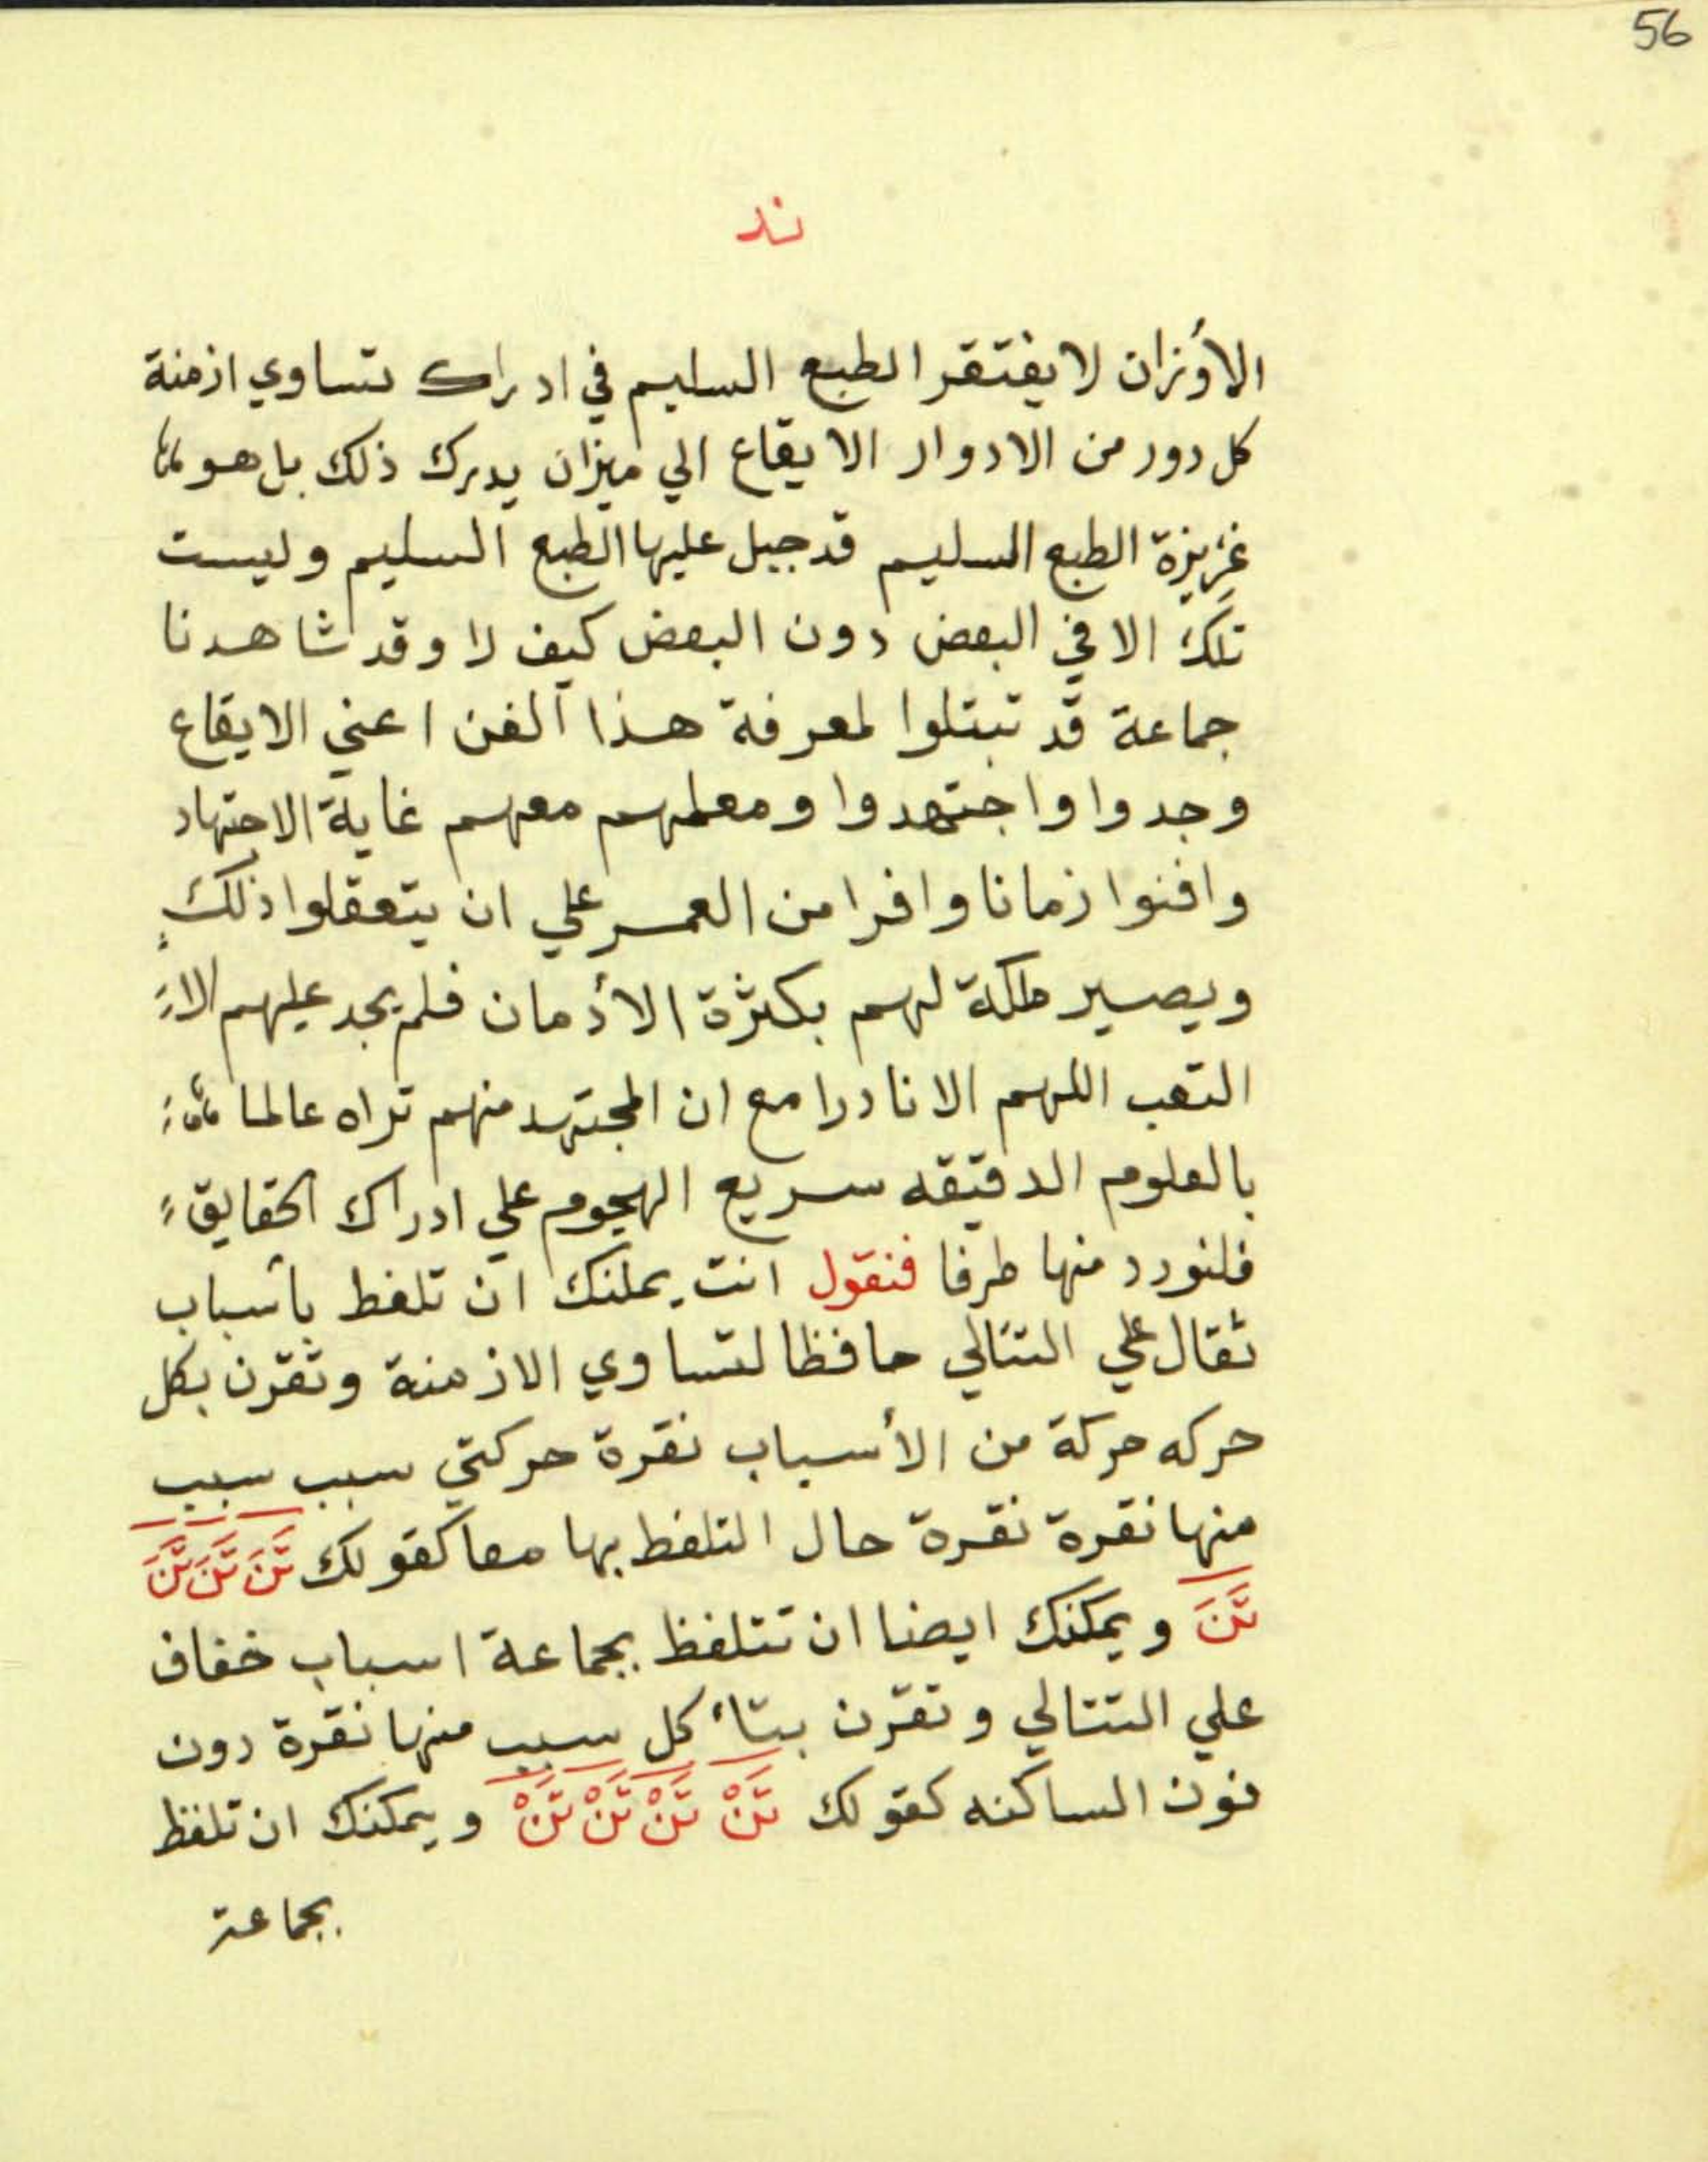 56
ند
الأوزان لا يفتقر الطبع السليم في ادراك تساوي ازمنة
كل دور من الادوار الايقاع الي ميزان يدرك ذلك بل هو
غريزة الطبع السليم قد جبل عليها الطبع السليم وليست
تلك الا في البعض دون البعض كيف لا وقد شاهدنا
جماعة قد تبتلوا لمعرفة هذا الفن اعني الايقاع
وجدوا واجتهدوا ومعلمهم معهم غاية الاجتهاد
وافنوا زمانا وافرا من العمر علي ان يتعقلوا ذلك
ويصير ملكة لهم بكثرة الأدمان فلم يجد عليهم الا
التعب اللهم الا نادرا مع ان المجتهد منهم تراه عالما
بالعلوم الدقيقه سريع الهجوم علي ادراك الحقايق
فلنورد منها طرفا فنقول انت يمكنك ان تلفط بأسباب
ثقال علي التتالي حافظا لتساوي الازمنة وتقرن بكل
حركه حركة من الأسباب نقرة حركتي سبب سبب
منها نقرة نقرة حال التلفظ بها معا كقولك تَنَ تَنَ تَنَ
تَنَ ويمكنك ايضا ان تتلفظ بجماعة اسباب خفاف
علي التتالي وتقرن بتاء كل سبب منها نقرة دون
نون الساكنه كقولك تَنْ تَنْ تَنْ تَنْ ويمكنك ان تلفظ
بجماعة